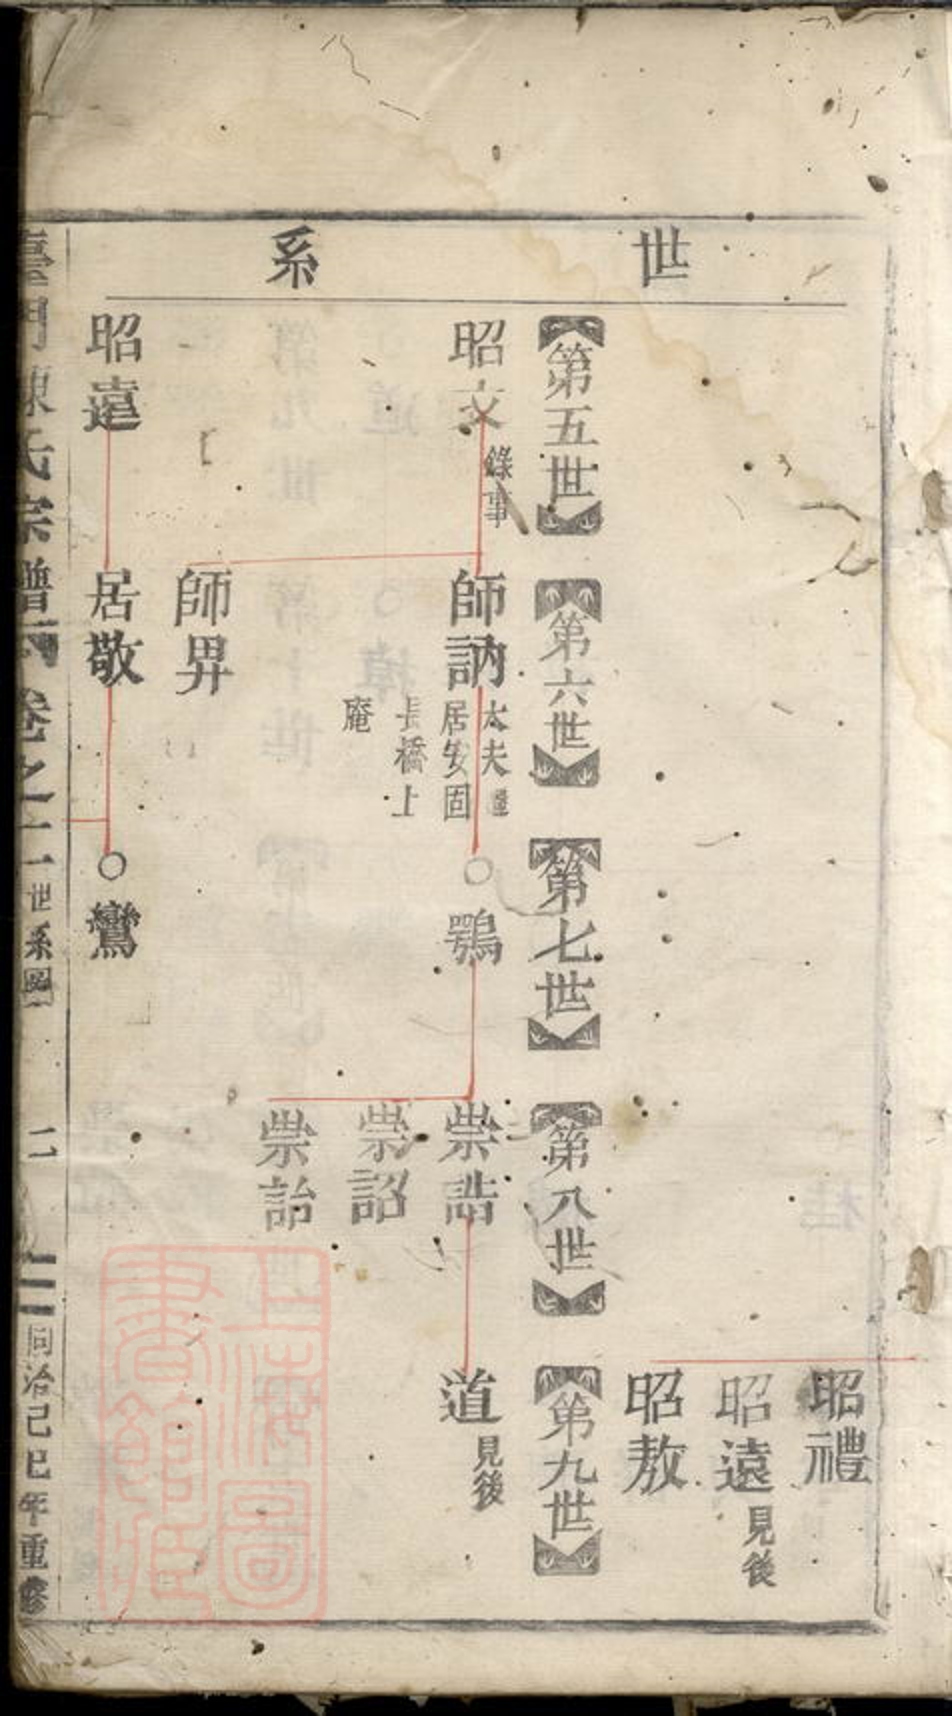 世系
昭禮
昭遠 見後
昭敖
第五世
第六世
第七世
第八世
第九世
昭文 錄事
師訥 大夫
居安固
長橋上
庵
○鶚
崇誥
道 見後
崇詔
崇詒
師畀
昭遠
居敬
○鸞
陳氏宗譜 卷之一 世系圖 二 同治己巳年重修
上海圖書館藏